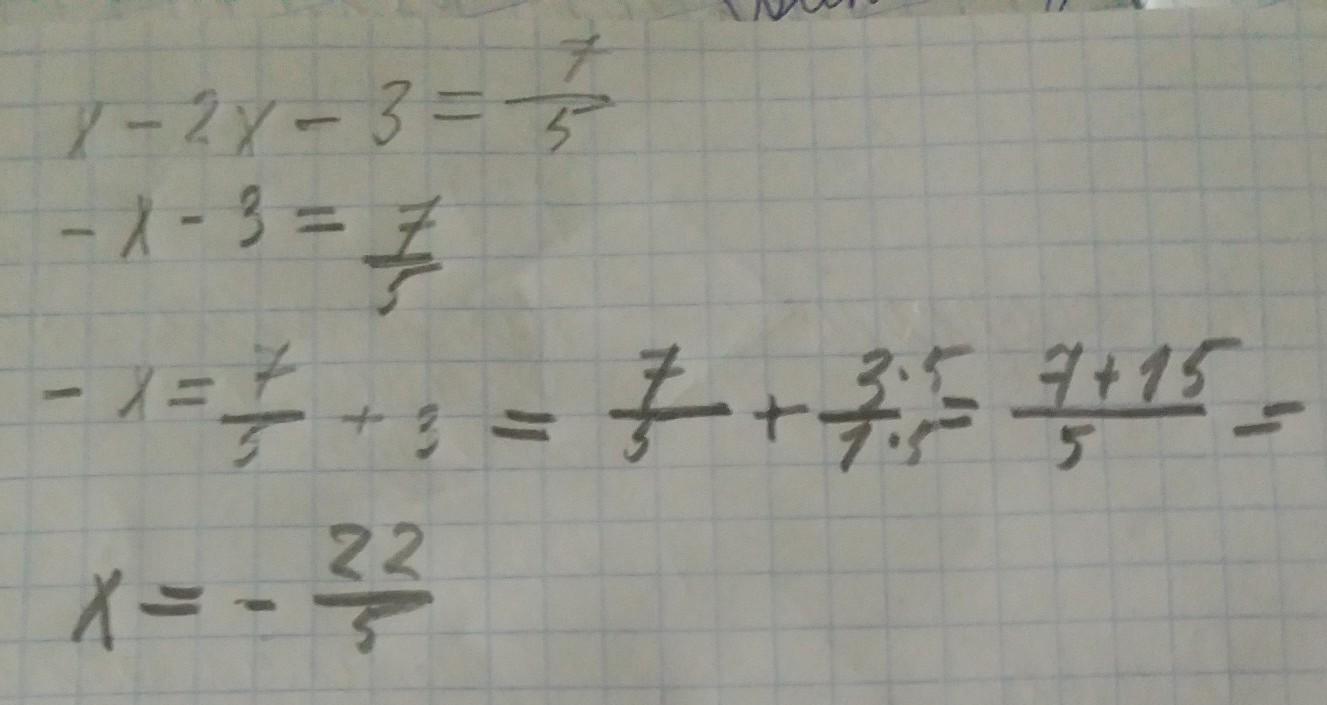 x - 2x - 3 = 7/5
- x - 3 = 7/5
- x = 7/5 + 3 = 7/5 + 3·5/1·5 = 7+15/5 =
x = - 22/5